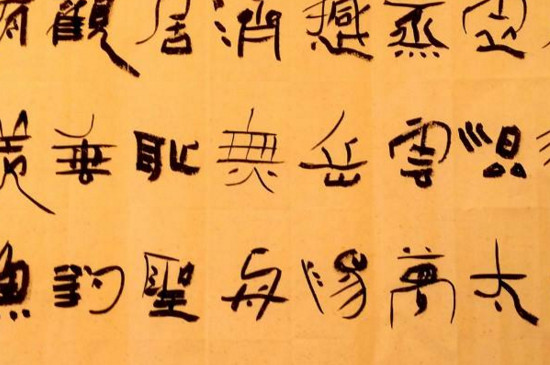 虛混太
蒸雲夢
撼岳陽
濟無舟
居恥聖
觀垂釣
有羨魚